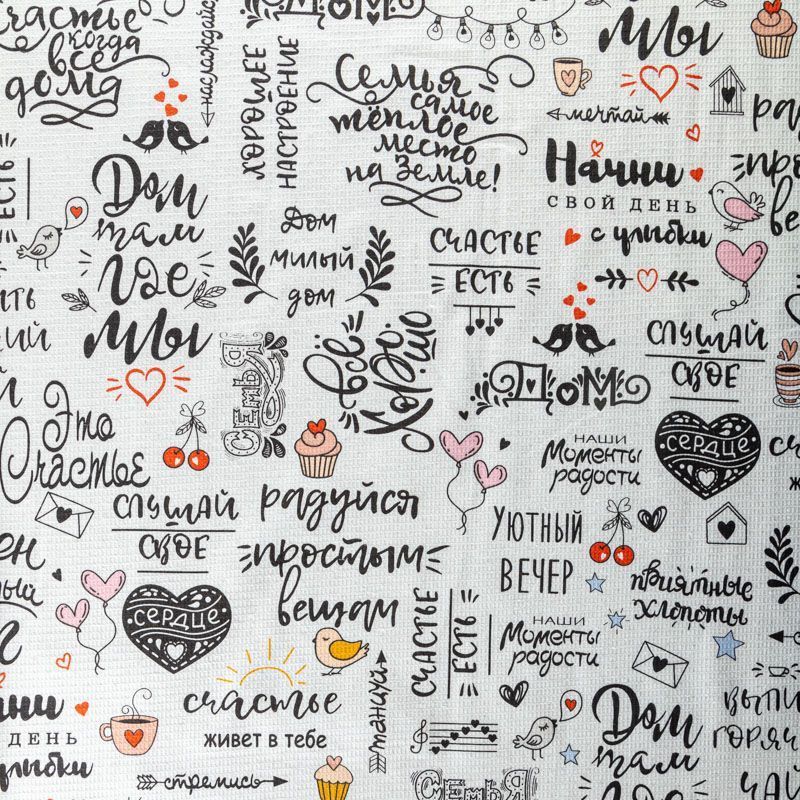 счастье
когда
всё
дома
наслаждайся
хорошее
настроение
дом
Семья
самое
тёплое
место
на Земле!
мы
мечтай
Начни
свой день
с улыбки
есть
Дом
там
где
мы
Дом
милый
дом
счастье
есть
слушай
своё
Семья
всё
хорошо
Дом
Это
Счастье
наши
моменты
радости
сердце
слушай
своё
радуйся
простым
вещам
уютный
вечер
приятные
хлопоты
сердце
счастье
есть
наши
моменты
радости
счастье
живет в тебе
танцуй
день
улыбки
стремись
Семья
Дом
там